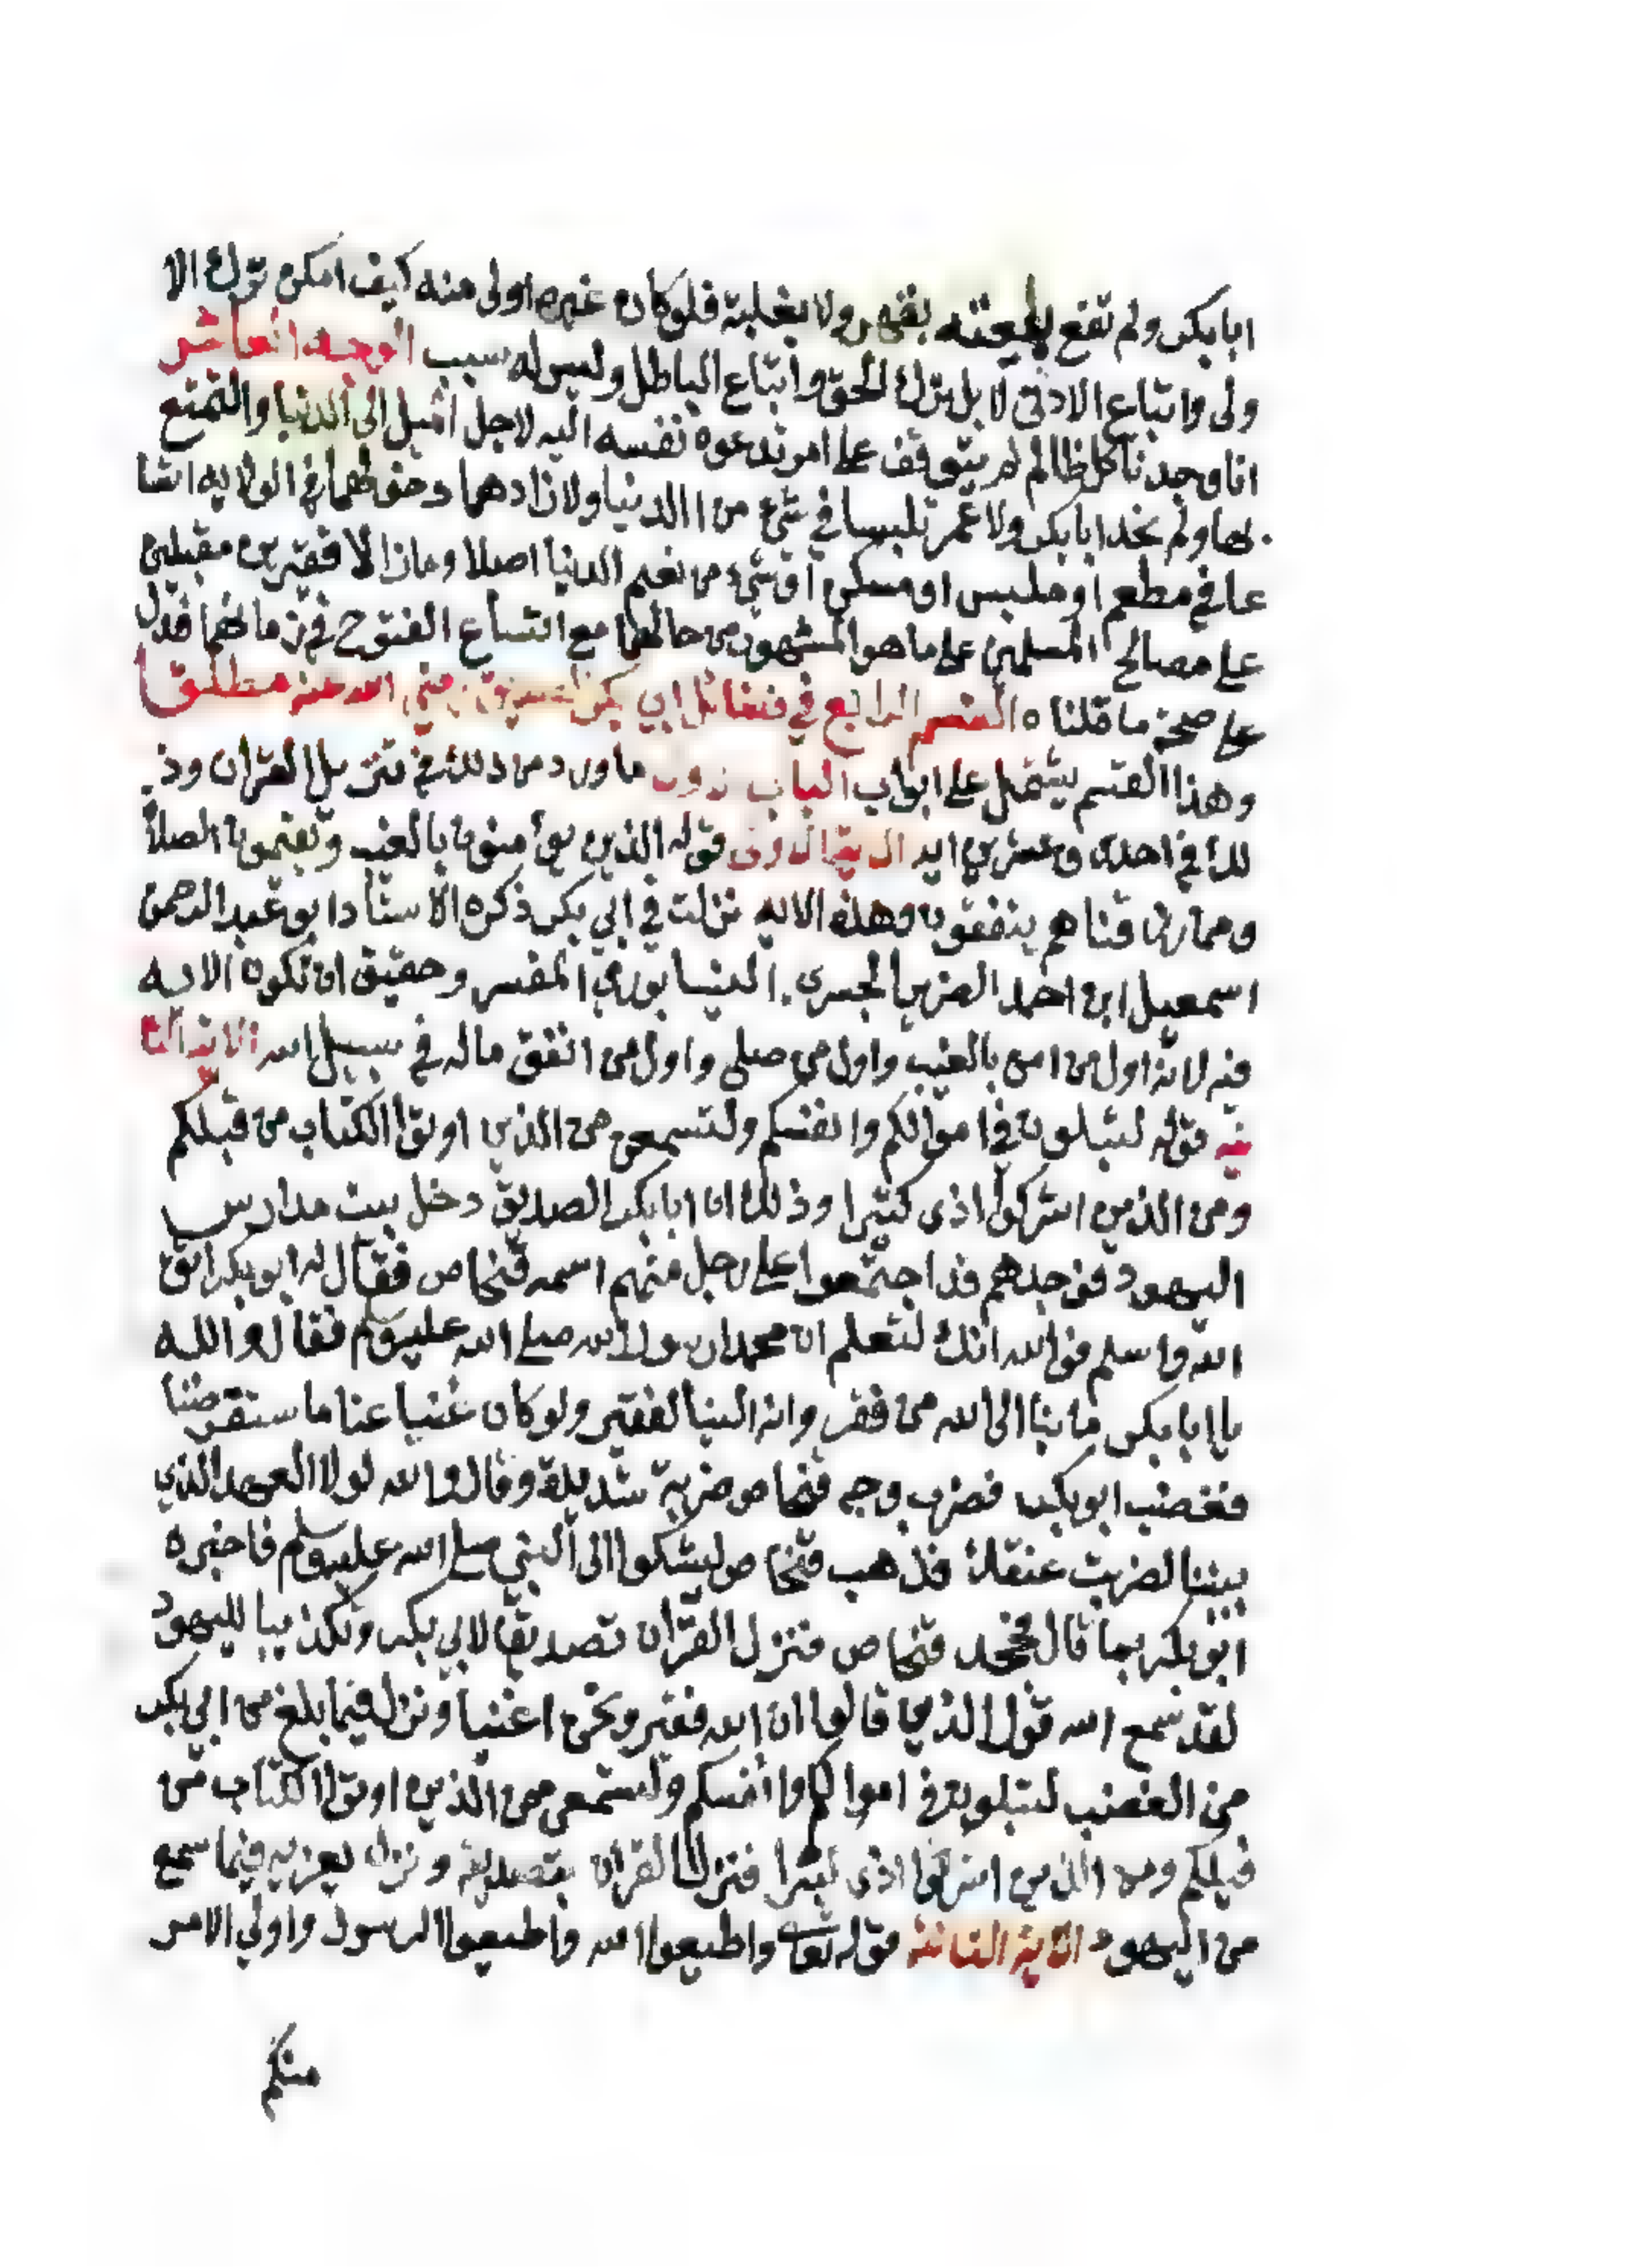 ابابكر ولم تقع بيعته بقهر ولا بغلبة فلو كان غيره اولى منه كيف امكن ترك الا
ولى واتباع الادنى لا بل ترك الحق واتباع الباطل وليس له سبب الوجه العاشر
انا وجدنا كل ظالم لم يتوقف على امر تدعوه نفسه اليه لاجل الميل الى الدنيا والتمتع
بها ولم نجد ابابكر ولا عمر تلبسا في شئ من االدنيا ولا زادهما دخولهما في الولايه اتسا
عا في مطعم او ملبس او مسكن او شئ من نعيم الدنيا اصلا وماذا الا فقيرين مقبلين
على مصالح المسلمين على ما هو المشهور من حالهما مع اتساع الفتوح في زمانهما فدل
على صحة ما قلناه القسم الرابع في فضائل ابي بكر الصديق رضي الله عنه مطلقا
وهذا القسم يشتمل على ابواب الباب الاول ما ورد من ذلك في تنزيل القران وذ
لك في احدى وعشرين ايه الايه الاولى قوله الذين يؤمنون بالغيب ويقيمون الصلاة
ومما رزقناهم ينفقون وهذه الايه نزلت في ابي بكر ذكره الاستاد ابو عبد الرحمن
اسمعيل ابن احمد الضرير الجيري النيسابوري المفسر وحقيق ان تكون الايه
فيه لانه اول من امن بالغيب واول من صلى واول من انفق ماله في سبيل الله الايه الثا
نيه قوله لتبلون في اموالكم وانفسكم ولتسمعن من الذين اوتوا الكتاب من قبلكم
ومن الذين اشركوا اذى كثيرا وذلك ان ابابكر الصديق دخل بيت مدارس
اليهود فوجدهم قد اجتمعوا على رجل منهم اسمه فنحاص فقال له ابوبكر اتق
الله واسلم فوالله انك لتعلم ان محمدا رسول الله صلى الله عليه وسلم فقال والله
يا ابابكر ما بنا الى الله من فقر وانه الينا لفقير ولو كان غنيا عنا ما ستقرضنا
فغضب ابوبكر فضرب وجه فنحاص ضربة شديدة وقال والله لولا العهد الذي
بيننا لضربت عنقك فذهب فنحاص ليشكوا الى النبي صلى الله عليه وسلم فاخبره
ابوبكر بما قال فجحد فنحاص فنزل القران تصديقا لابي بكر وتكذيبا لليهود
لقد سمع الله قول الذين قالوا ان الله فقير ونحن اغنيا ونزل فيما بلغ من ابي بكر
من الغضب لتبلون في اموالكم وانفسكم ولتسمعن من الذين اوتوا الكتاب من
قبلكم ومن الذين اشركوا اذى كثيرا فنزل القران بتصديقه ونزل يعزيه فيما سمع
من اليهود الاية الثالثة قوله تعالى واطيعوا الله واطيعوا الرسول واولي الامر
منكم